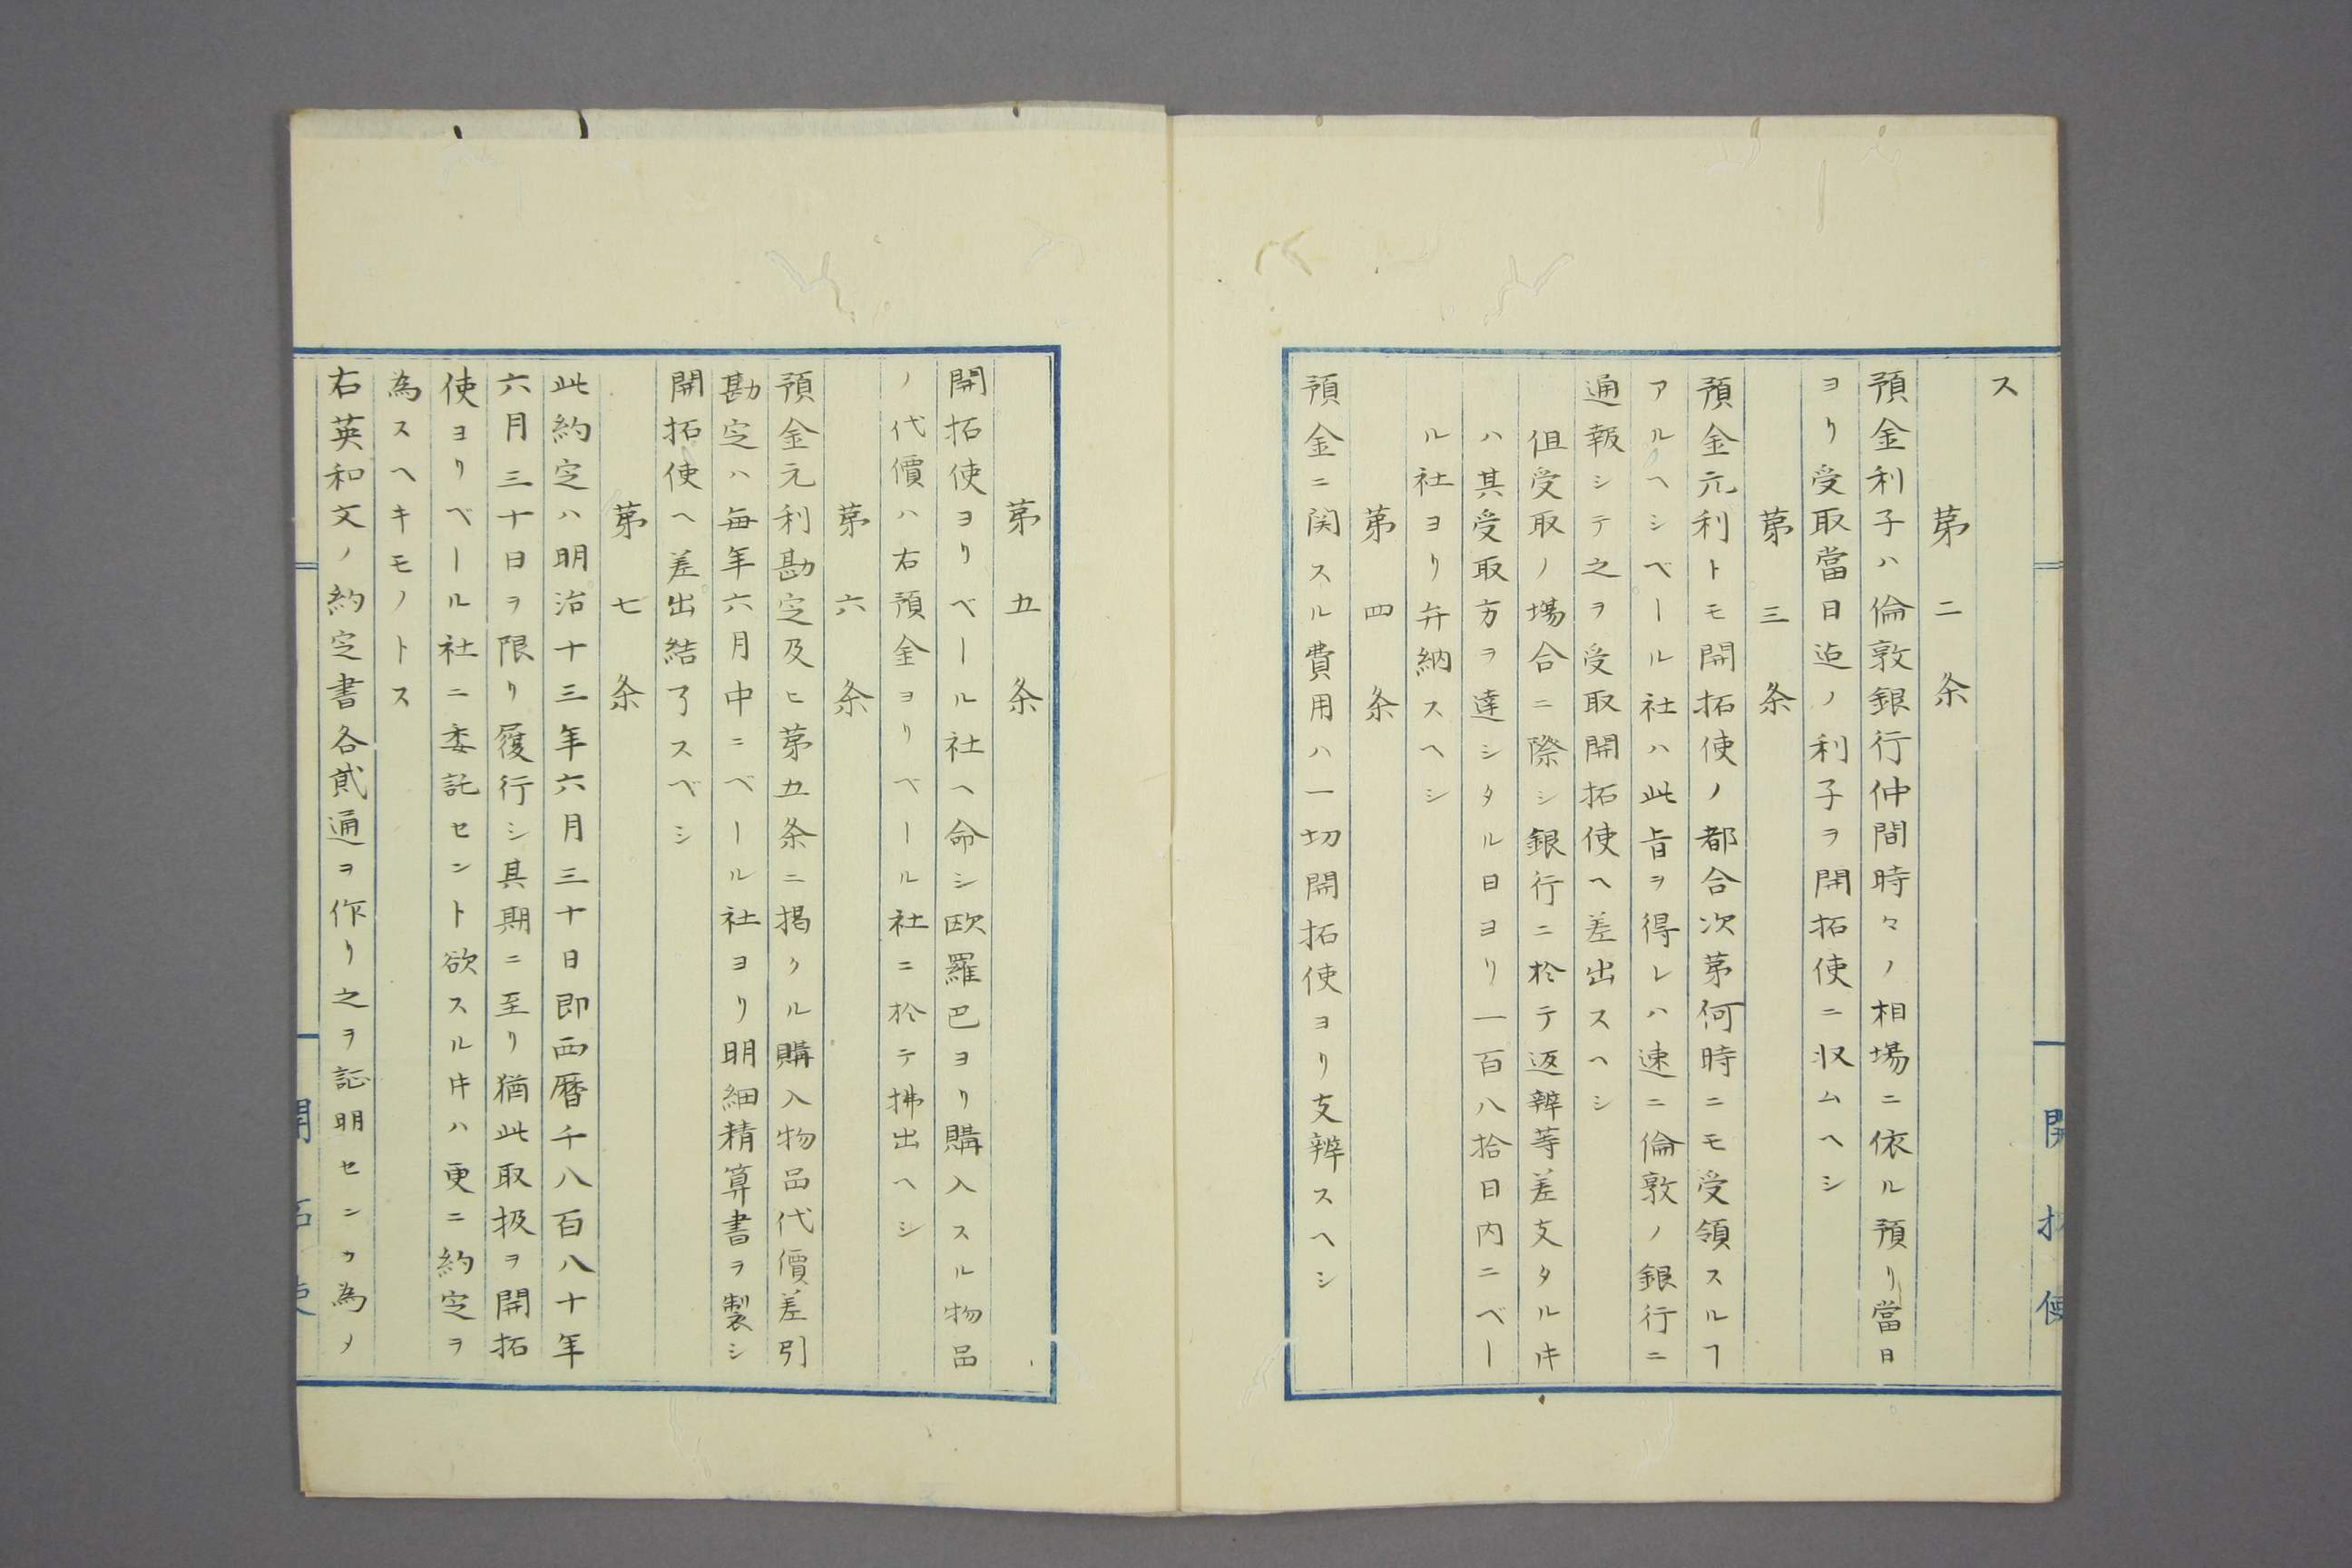 ス
第二条
預金利子ハ倫敦銀行仲間時々ノ相場ニ依ル預り當日
ヨリ受取當日迠ノ利子ヲ開拓使ニ収ムヘシ
第三条
預金元利トモ開拓使ノ都合次第何時ニモ受領スルヿ
アルヘシベール社ハ此旨ヲ得レハ速ニ倫敦ノ銀行ニ
通報シテ之ヲ受取開拓使ヘ差出スヘシ
但受取ノ場合ニ際シ銀行ニ於テ返辨等差支タルキ
ハ其受取方ヲ達シタル日ヨリ一百八拾日内ニベー
ル社ヨリ弁納スヘシ
第四条
預金ニ関スル費用ハ一切開拓使ヨリ支辨スヘシ
開拓使
第五条
開拓使ヨリベール社ヘ命シ欧羅巴ヨリ購入スル物品
ノ代價ハ右預金ヨリベール社ニ於テ拂出ヘシ
第六条
預金元利勘定及ヒ第五条ニ掲クル購入物品代價差引
勘定ハ毎年六月中ニベール社ヨリ明細精算書ヲ製シ
開拓使ヘ差出結了スベシ
第七条
此約定ハ明治十三年六月三十日即西暦千八百八十年
六月三十日ヲ限リ履行シ其期ニ至リ猶此取扱ヲ開拓
使ヨリベール社ニ委託セント欲スルキハ更ニ約定ヲ
為スヘキモノトス
右英和文ノ約定書各貳通ヲ作リ之ヲ証明センカ為メ
開拓使